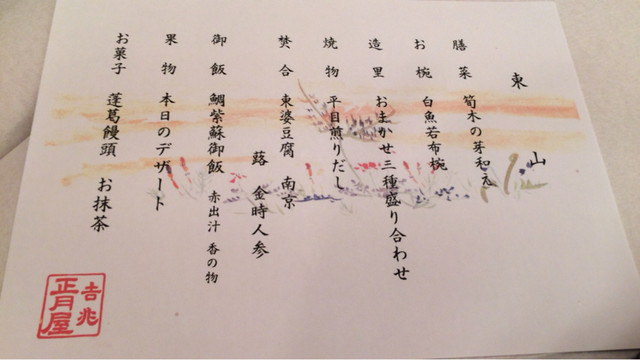 東山
膳菜 筍木の芽和え
お椀 白魚若布椀
造里 おまかせ三種盛り合わせ
焼物 平目煎りだし
焚合 東婆豆腐 南京
蕗 金時人参
御飯 鯛紫蘇御飯 赤出汁 香の物
果物 本日のデザート
お菓子 蓬葛饅頭 お抹茶
吉兆
正月屋